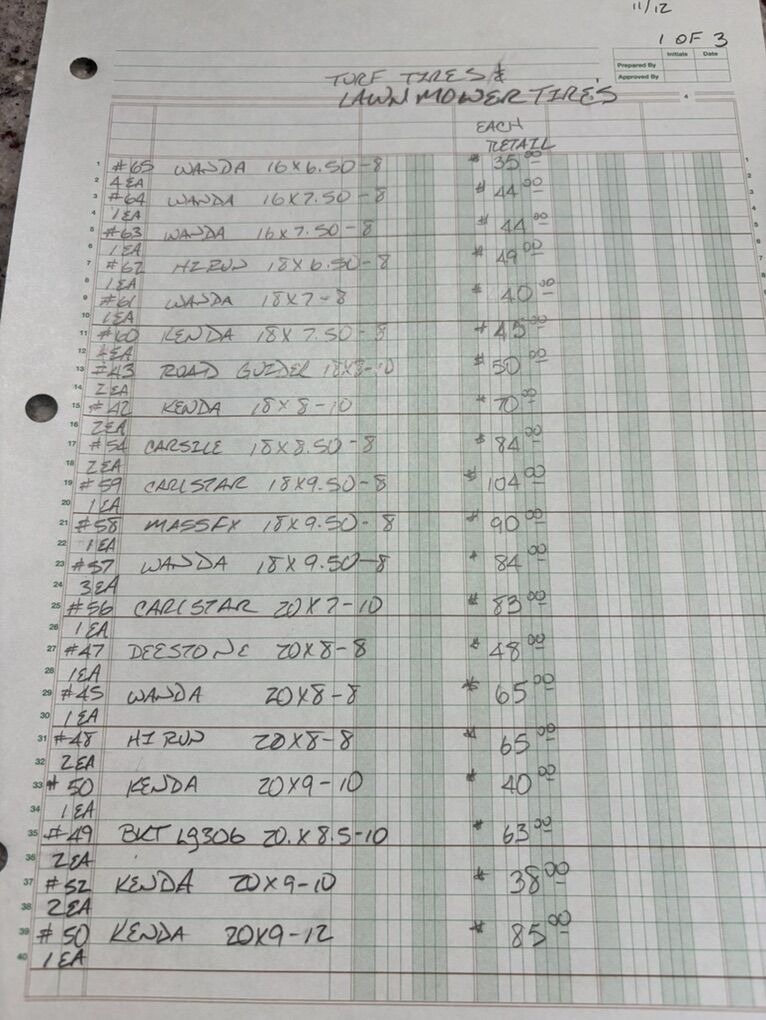 11/12
1 OF 3
Initials Date
Prepared By
Approved By
TURF TIRES &
LAWNMOWER TIRE'S
4
EACH
RETAIL
1 #65 WANDA 16X6.50-8 $ 35.00 1
2 4 EA 2
3 #64 WANDA 16X7.50-8 $ 44.00 3
4 1 EA 4
5 #63 WANDA 16X7.50-8 $ 44.00 5
6 1 EA 6
7 #62 HI RUN 18X6.50-8 $ 49.00 7
8 1 EA 8
9 #61 WANDA 18X7-8 $ 40.00
10 1 EA
11 #60 KENDA 18X7.50-8 $ 45.00
12 EA
13 #43 ROAD GUIDER 18X8-10 $ 50.00
14 2 EA
15 #42 KENDA 18X8-10 $ 70.00
16 2 EA
17 #54 CARSILE 18X8.50-8 $ 84.00
18 2 EA
19 #59 CARLSTAR 18X9.50-8 $ 104.00
20 1 EA
21 #58 MASSFX 18X9.50-8 $ 90.00
22 1 EA
23 #57 WANDA 18X9.50-8 $ 84.00
24 3 EA
25 #56 CARLSTAR 20X7-10 $ 83.00
26 1 EA
27 #47 DEESTONE 20X8-8 $ 48.00
28 1 EA
29 #45 WANDA 20X8-8 $ 65.00
30 1 EA
31 #48 HI RUN 20X8-8 $ 65.00
32 2 EA
33 #50 KENDA 20X9-10 $ 40.00
34 1 EA
35 #49 BKT LG306 20.X8.5-10 $ 63.00
36 2 EA
37 #52 KENDA 20X9-10 $ 38.00
38 2 EA
39 #50 KENDA 20X9-12 $ 85.00
40 1 EA